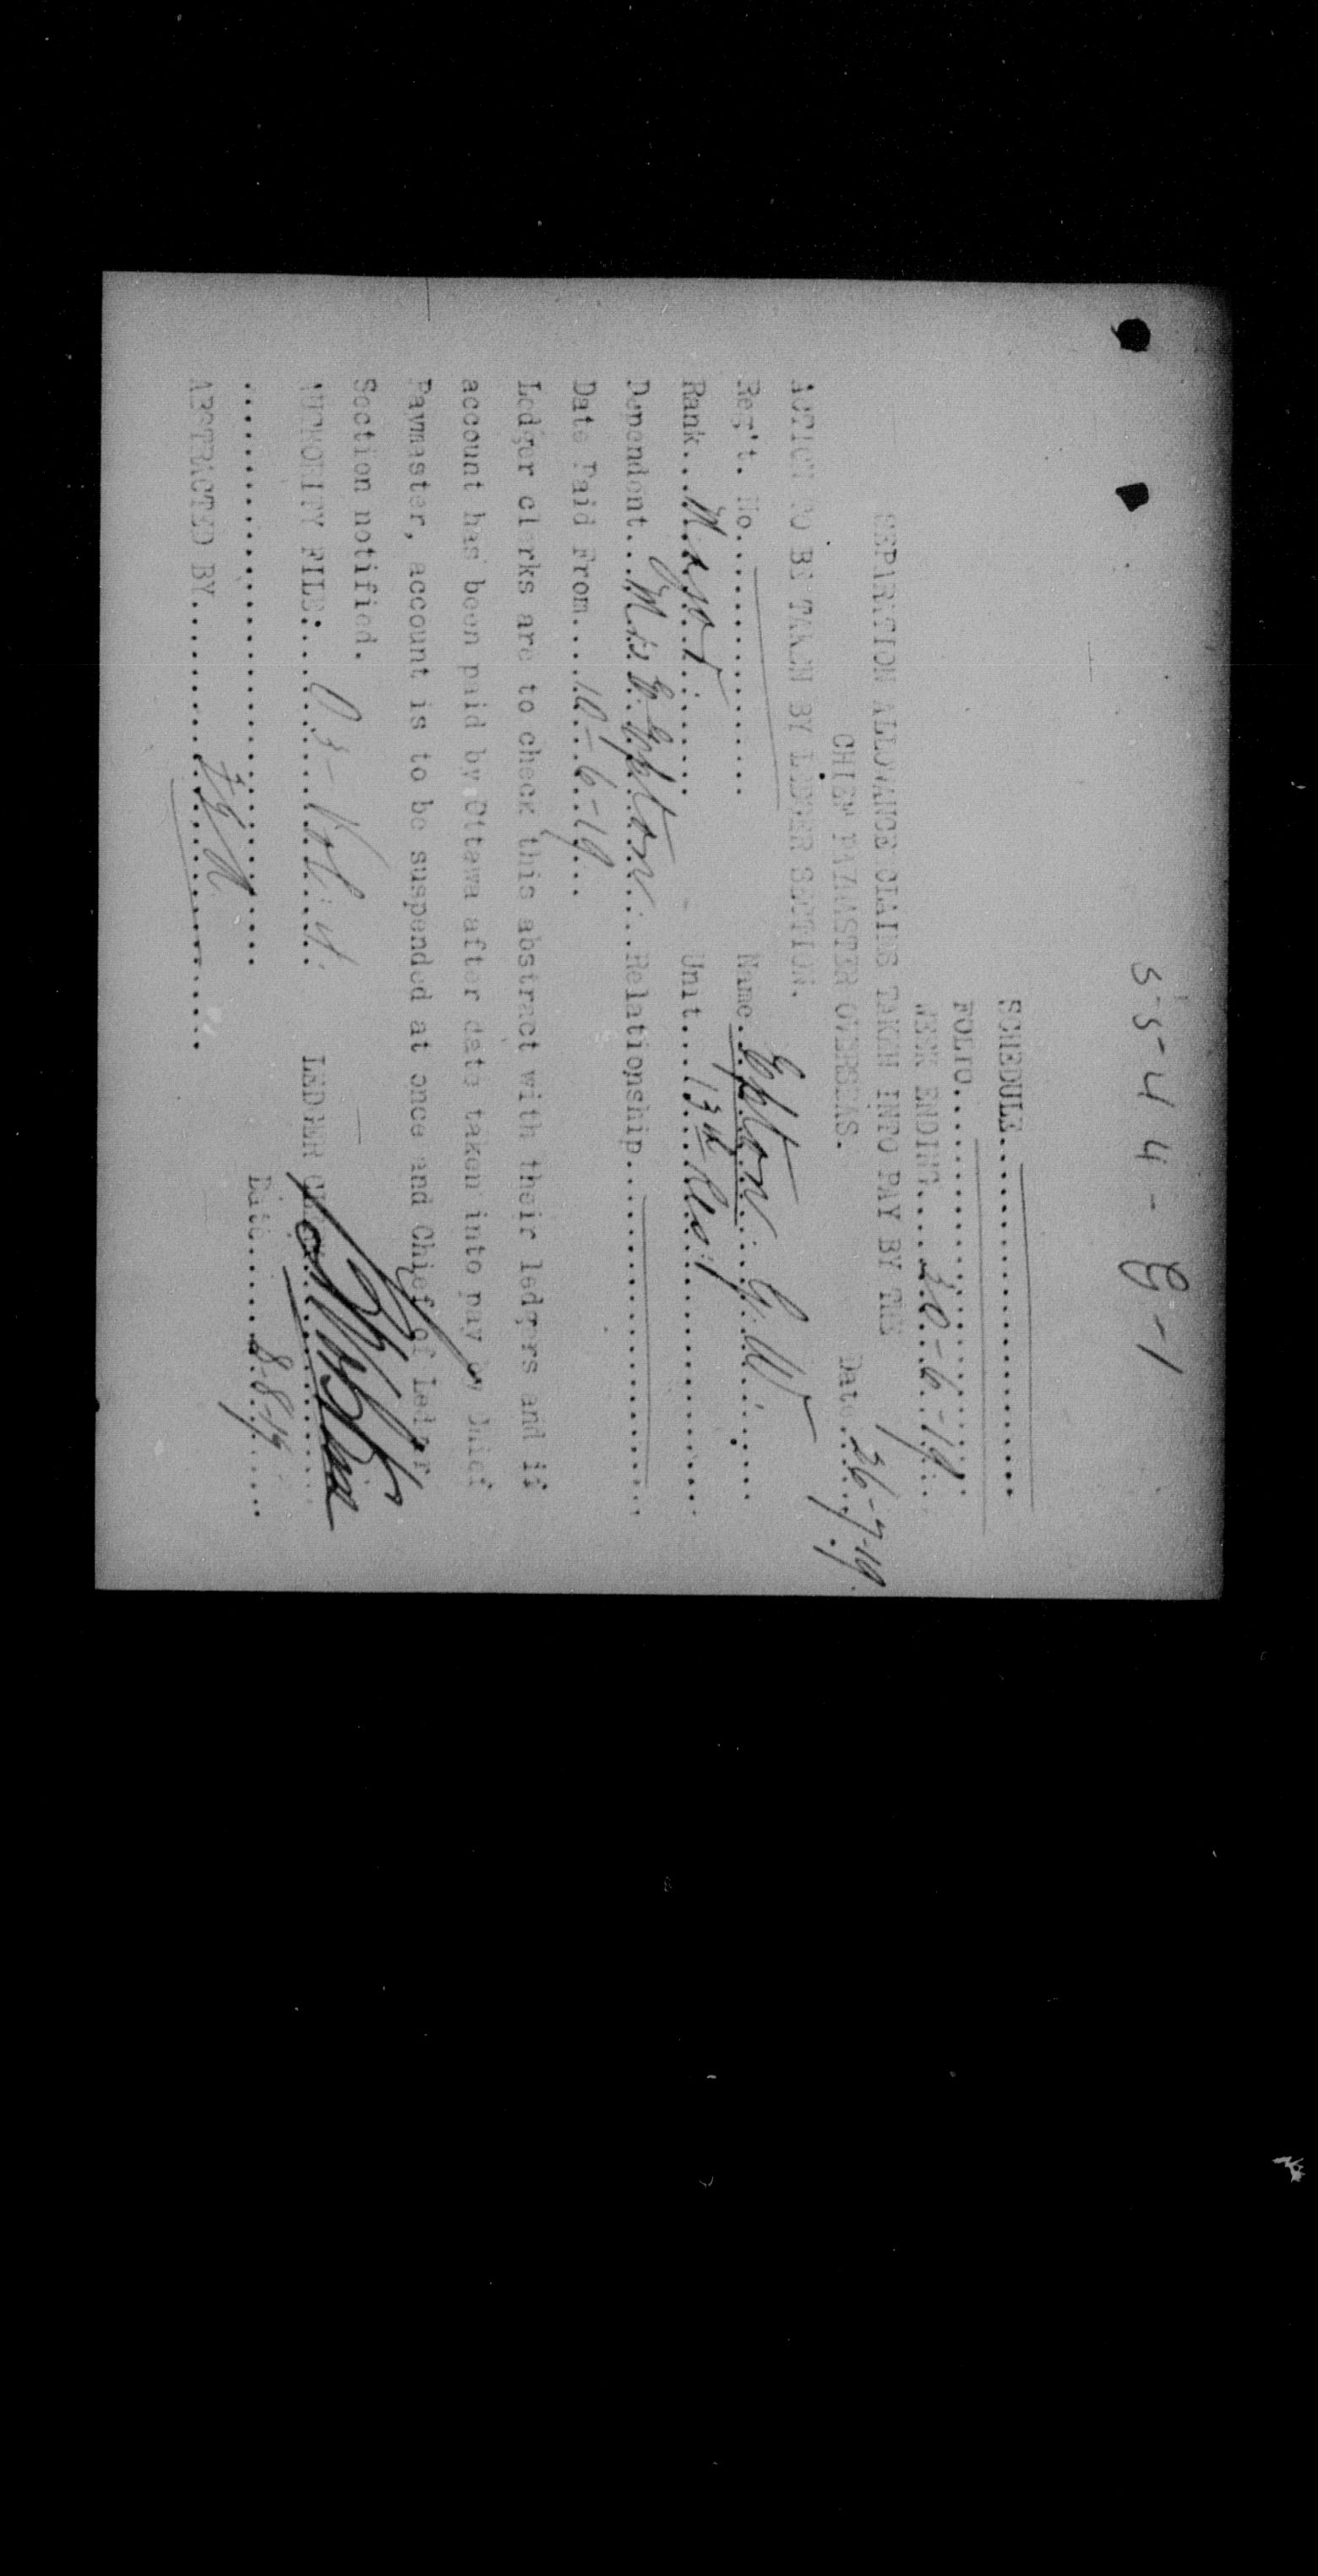 55-44-E-1
SCHEDULE..............................
FOLIO..............................
WEEK ENDING.....30-6-19...
SEPARATION ALLOWANCE CLAIMS TAKEN INTO PAY BY THE
CHIEF PAYMASTER OVERSEAS. Date...26-7-19.
ACTION TO BE TAKEN BY LEDGER SECTION.
Reg't. No.................... Name..Epton G. W..........
Rank...Major........ Unit...13th Res...............
Dependent...Mrs E. Epton.... Relationship.....................
Date Paid From....10-6-19...
Ledger clerks are to check this abstract with their ledgers and if
account has been paid by Ottawa after date taken into pay by Chief
Paymaster, account is to be suspended at once and Chief of Ledger
Section notified.
AUTHORITY FILE:... LEDGER
.............................. Date.......8-8-19....
ABSTRACTED BY..............................